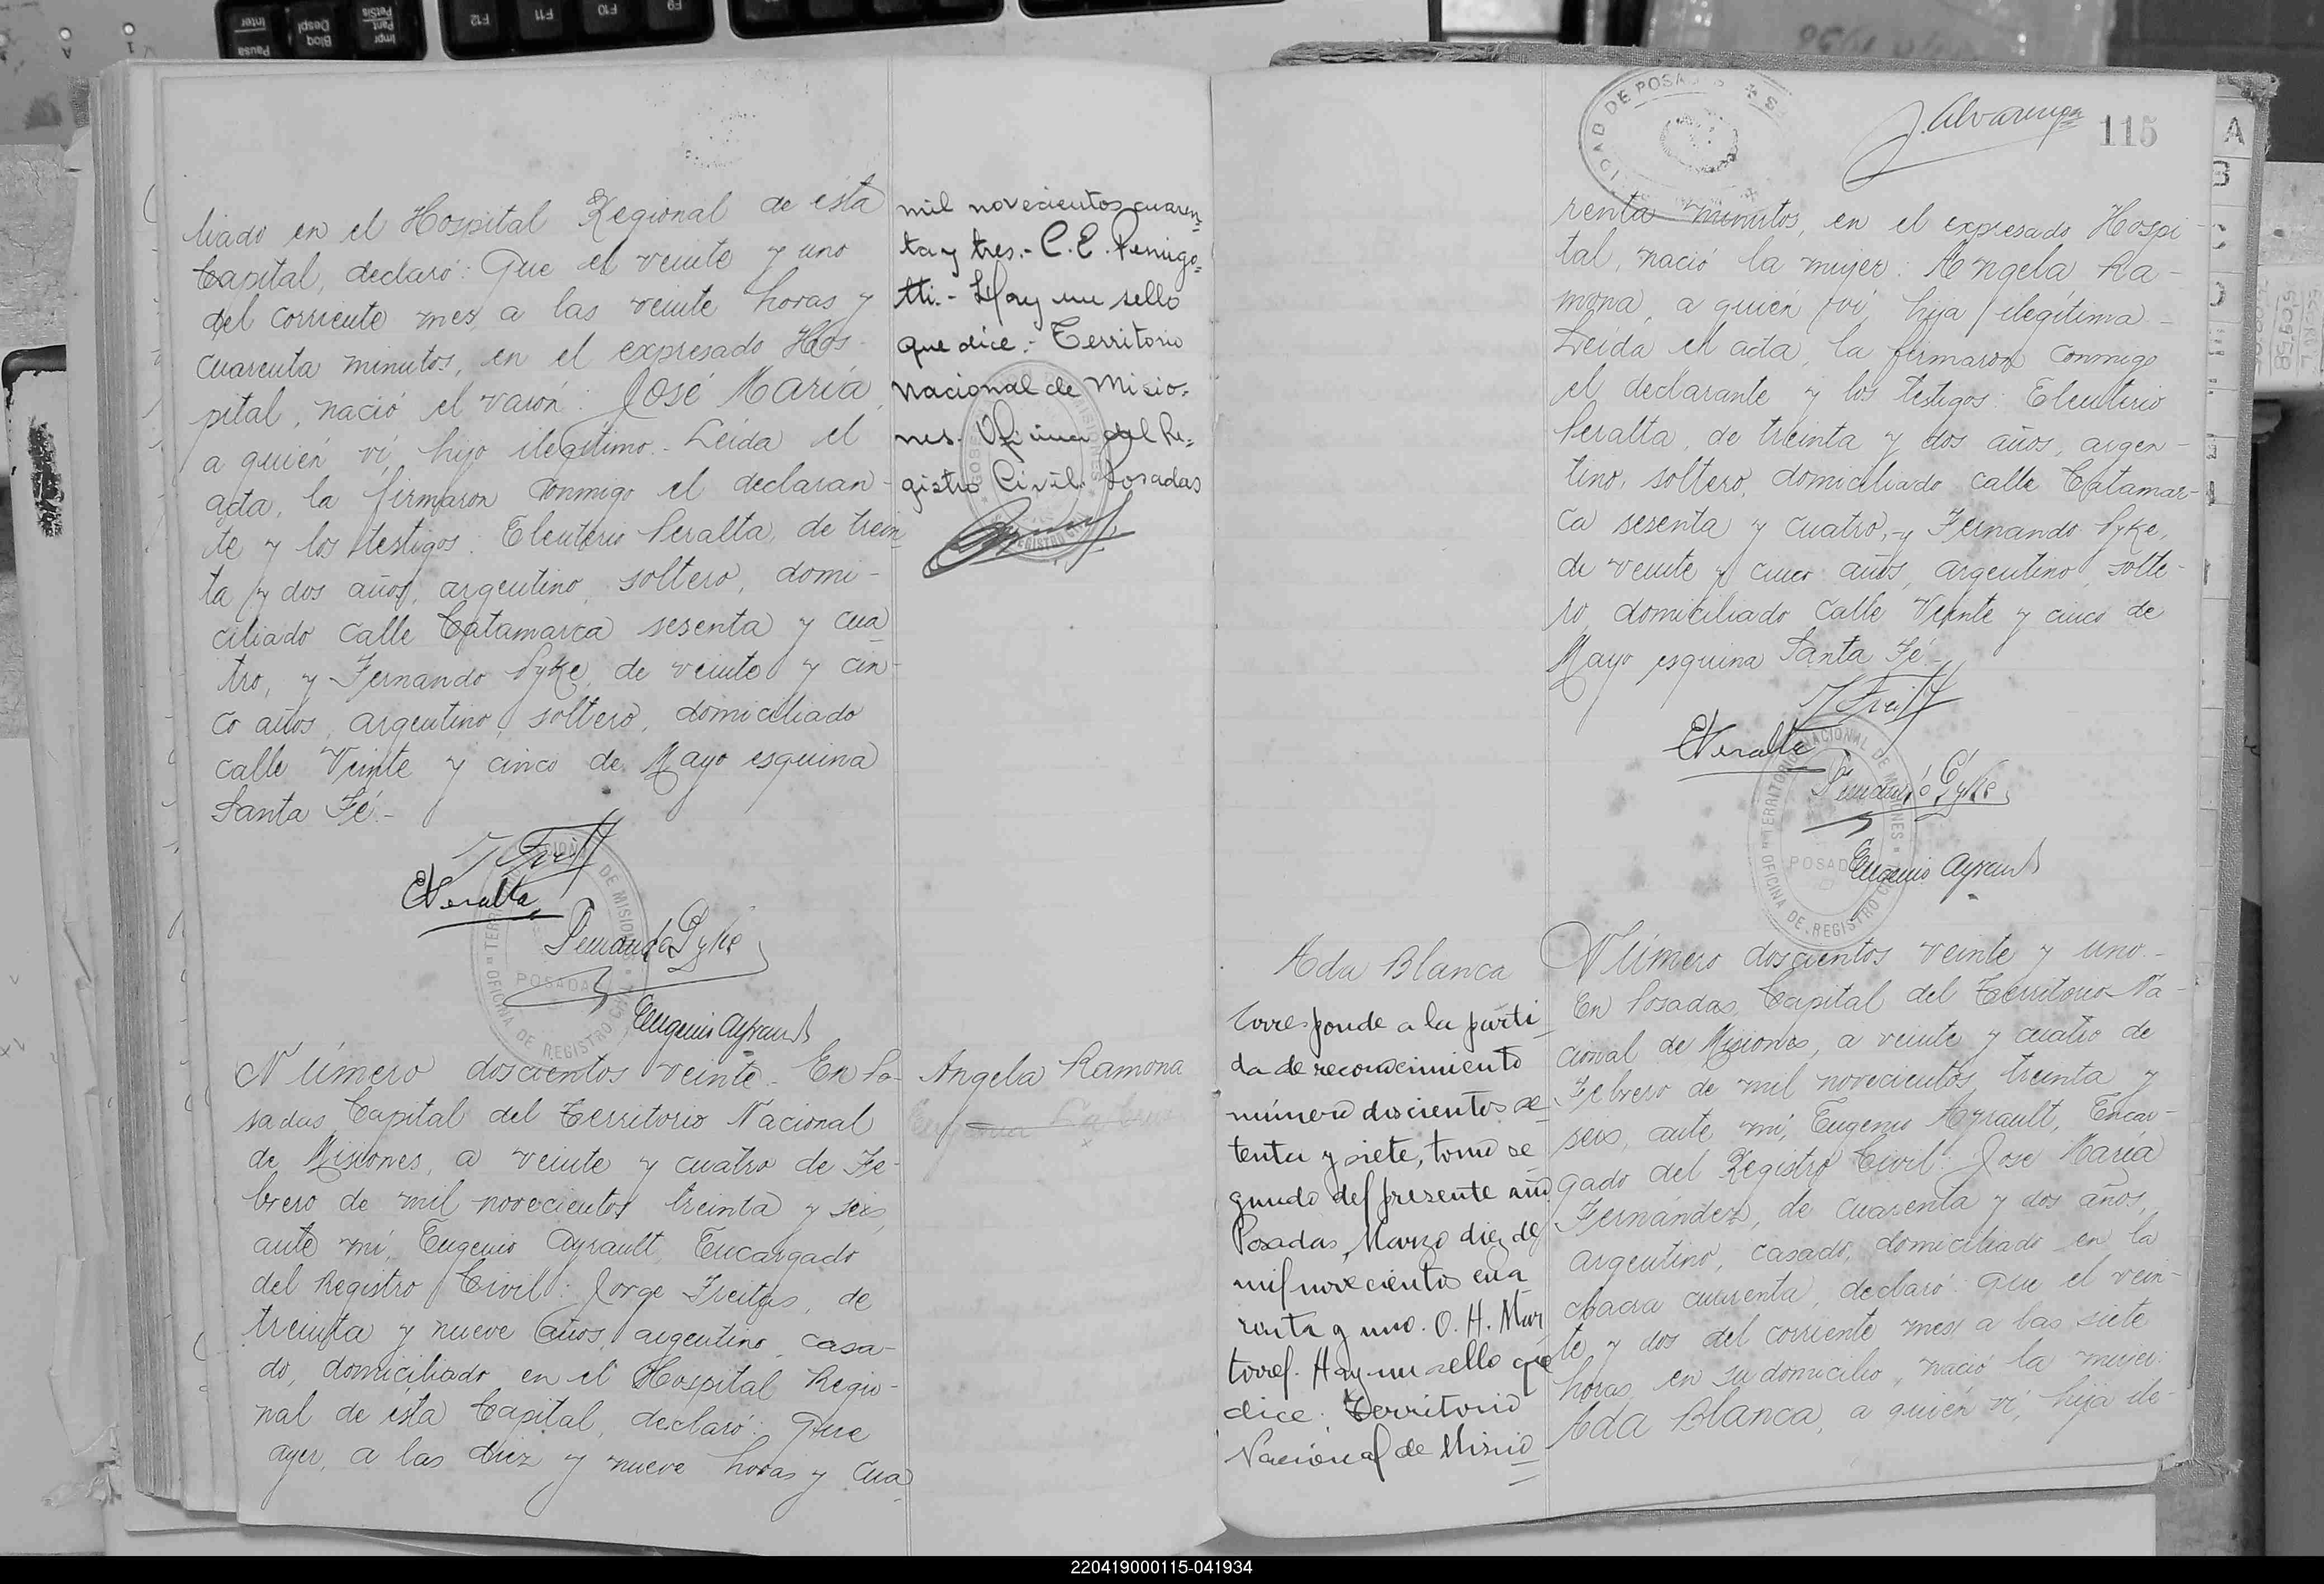 liado en el Hospital Regional de esta
Capital, declaró: Que el veinte y uno
del corriente mes, a las veinte horas y
cuarenta minutos, en el expresado Hos-
pital, nació el varón: José María,
a quién ví, hijo ilegítimo.- Leída el
acta, la firmaron conmigo el declaran-
te y los testigos: Eleuterio Peralta, de trein
ta y dos años, argentino, soltero, domi-
ciliado calle Catamarca sesenta y cua
tro, y Fernando Pyke, de veinte y cin-
co años, argentino, soltero, domiciliado
calle Veinte y cinco de Mayo esquina
Santa Fé.-
EPeralta
Fernando Pyke
Eugenio Ayrault
mil novecientos cuaren
ta y tres.- C. E. Penigo=
tti.- Hay un sello
que dice:- Territorio
Nacional de Misio=
nes. Oficina del Re=
gistro Civil. Posadas
Número doscientos veinte.- En Po-
sadas, Capital del Territorio Nacional
de Misiones, a veinte y cuatro de Fe-
brero de mil novecientos treinta y seis,
ante mí, Eugenio Ayrault, Encargado
del Registro Civil: Jorge Freitas, de
treinta y nueve años, argentino, casa-
do, domiciliado en el Hospital Regio-
nal de esta Capital, declaró: Que
ayer, a las diez y nueve horas y cua
Angela Ramona
J. Alvarenga
115
renta minutos, en el expresado Hospi
tal, nació la mujer: Angela Ra-
mona, a quién ví, hija ilegítima.-
Leída el acta, la firmaron conmigo
el declarante y los testigos: Eleuterio
Peralta, de treinta y dos años, argen-
tino, soltero, domiciliado calle Catamar-
ca sesenta y cuatro, y Fernando Pyke,
de veinte y cinco años, argentino, solte-
ro, domiciliado calle Veinte y cinco de
Mayo esquina Santa Fé.-
EPeralta
Fernando Pyke
Eugenio Ayrault
TERRITORIO NACIONAL DE MISIONES
POSADAS
OFICINA DE REGISTRO CIVIL
Ada Blanca
Corresponde a la parti
da de reconocimiento
número doscientos se
tenta y siete, tomo se
gundo del presente año
Posadas, Marzo diez de
mil novecientos cua
renta y uno. O. H. Mar
torel. Hay un sello que
dice: Territorio
Nacional de Misio
Número doscientos veinte y uno.-
En Posadas, Capital del Territorio Na-
cional de Misiones, a veinte y cuatro de
Febrero de mil novecientos treinta y
seis, ante mí, Eugenio Ayrault, Encar-
gado del Registro Civil: José María
Fernández, de cuarenta y dos años,
argentino, casado, domiciliado en la
chacra cuarenta, declaró: Que el vein-
te y dos del corriente mes, a las siete
horas, en su domicilio, nació la mujer:
Ada Blanca, a quién ví, hija ile-
220419000115-041934